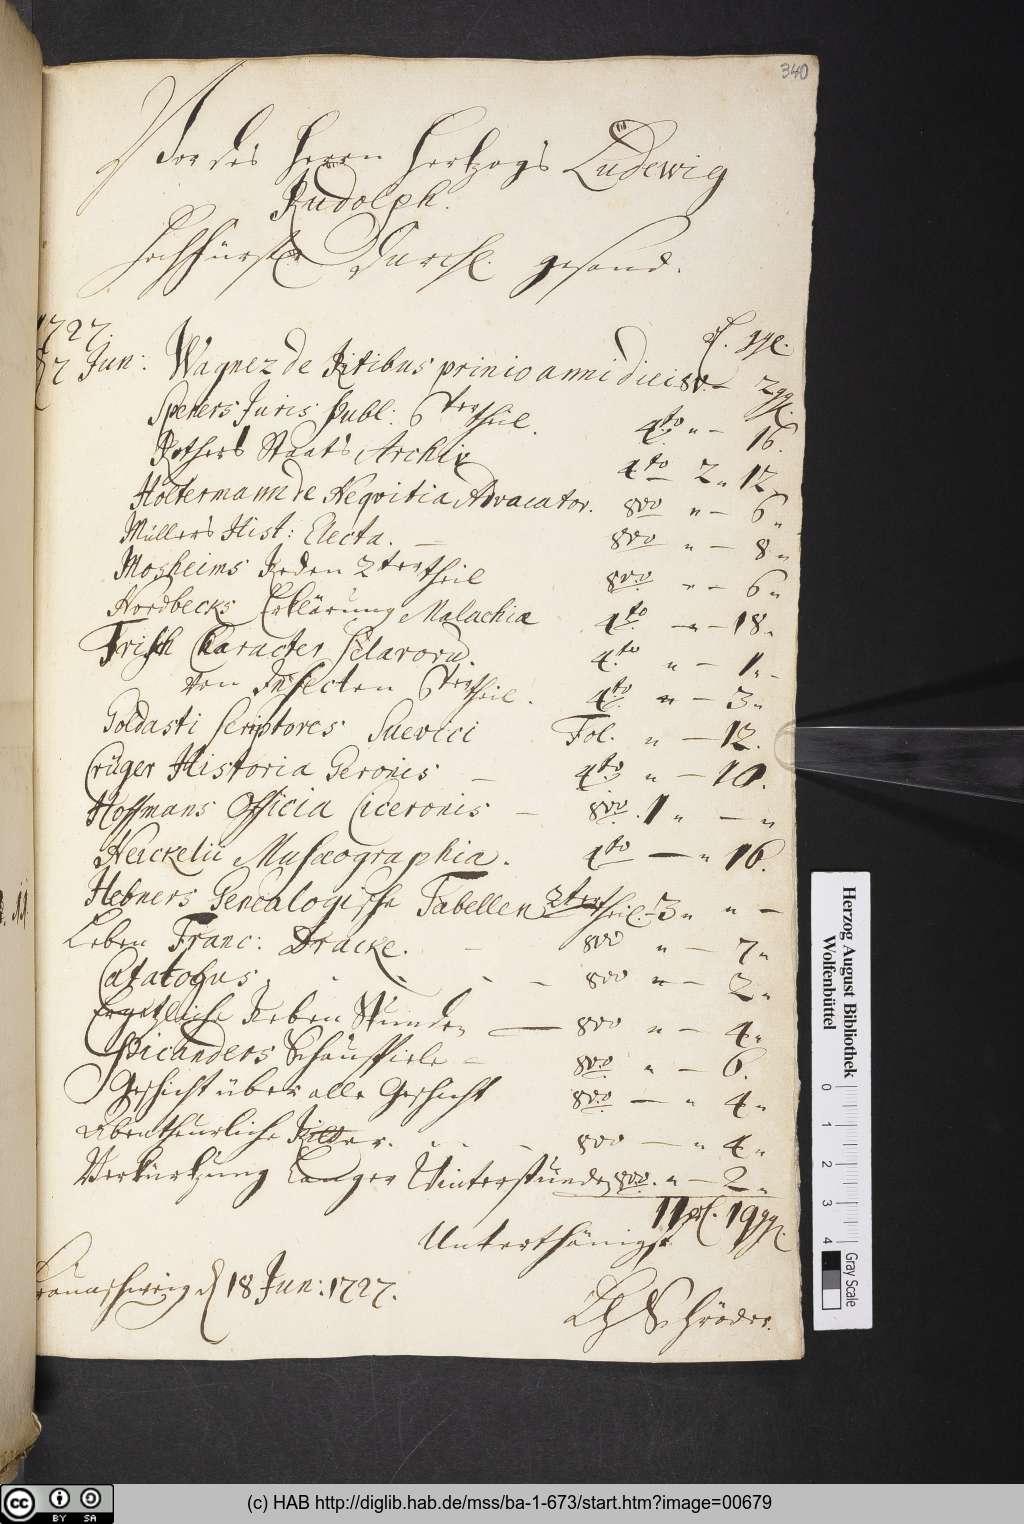 340
Vor des Herrn Hertzogs Ludewig
Rudolph.
Hochfürstl. Durchl. gesand.
1727.
Jun: Wagner de Ritibus primio anni diei 8v. – 2 ggl.
Speners Juris Publ. 6ter theil. 4to „ – 16.
Rothers Staats Archiv 4to 2 „ 12
Holtermann de Neqvitia Advocator. 8vo „ – 6 „
Müllers Hist: Electa. – 8vo „ – 8 „
Mosheims Reden 2ter theil 8vo „ – 6 „
Nordbecks Erklärung Malachiæ 4to „ – 18 „
Frisch Character Sclavoru. 4to „ – 1 „ –
von Insecten 6ter theil. 4to „ – 3 „
Goldasti Scriptores Suevici Fol. „ – 12.
Crüger Historia Geronis – 4to „ – 10.
Hoffmans Officia Ciceronis – 8vo. 1 „ – „
Neickelii Musæographia. 4to – „ 16.
Hebners Genealogische Tabellen 2ter theil – 3 „ „ –
Leben Franc: Dracke. – 8vo „ – 7 „
Catalogus – 8vo „ – 2 „
Ergetzliche Neben Stunden – 8vo „ – 4 „
Picanders Schauspiele – 8vo „ – 6.
Gesicht über alle Gesicht 8vo – „ 4 „
Abentheurliche Ritter. – 8vo – „ 4 „
Verkürtzung langer Winterstunden 8vo. „ – 2 „
11 rl. 19 ggl.
Unterthänigst
Braunschweig d 18 Jun: 1727.
Schröder.
Herzog August Bibliothek
Wolfenbüttel
0 1 2 3 4
Gray Scale
cc BY SA
(c) HAB http://diglib.hab.de/mss/ba-1-673/start.htm?image=00679